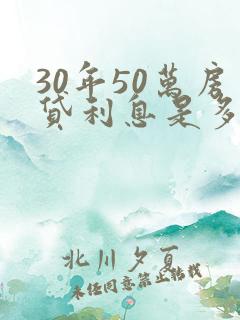 30年50萬房
貸利息是多
北川夕夏
未经同意禁止转载